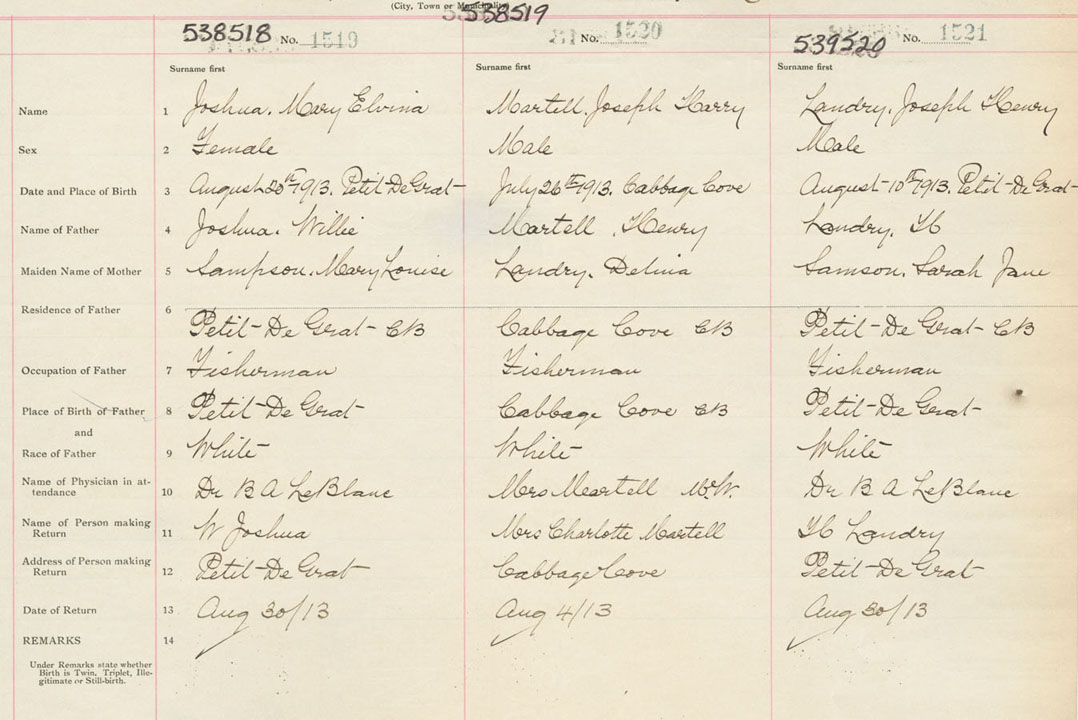 (City, Town or Municipality)
538518 No. 1519
538519 No. 1520
539520 No. 1521
Surname first Surname first Surname first
Name 1 Joshua, Mary Elvina Martell, Joseph Harry Landry, Joseph Henry
Sex 2 Female Male Male
Date and Place of Birth 3 August 20th 1913. Petit-De Grat July 26th 1913. Cabbage Cove August 10th 1913. Petit-De Grat
Name of Father 4 Joshua. Willie Martell, Henry Landry, H
Maiden Name of Mother 5 Sampson. Mary Louise Landry. Delina Samson. Sarah Jane
Residence of Father 6 Petit-De Grat- CB Cabbage Cove CB Petit-De Grat- CB
Occupation of Father 7 Fisherman Fisherman Fisherman
Place of Birth of Father 8 Petit-De Grat Cabbage Cove CB Petit-De Grat
and
Race of Father 9 White White White
Name of Physician in at-
tendance 10 Dr B A LeBlanc Mrs Martell M.W. Dr B A LeBlanc
Name of Person making
Return 11 W Joshua Mrs Charlotte Martell H Landry
Address of Person making
Return 12 Petit-De Grat Cabbage Cove Petit-De Grat
Date of Return 13 Aug 30/13 Aug 4/13 Aug 30/13
REMARKS 14
Under Remarks state whether
Birth is Twin, Triplet, Ille-
gitimate or Still-birth.